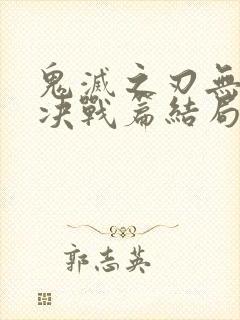 鬼滅之刃無
决戰篇結局
郭志英